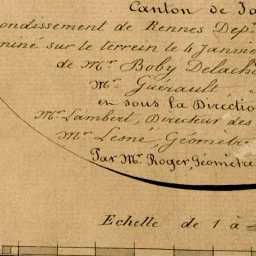 Canton de Ja
ondissement de Rennes Dep.t
miné sur le terrein le 4 Janvie
de Mr. Boby Delach
Mr. Guerault
en sous la Directio
Mr. Lambert, Directeur des
Mr. Lesné, Géomètre
Par Mr. Roger, Géomètre
Echelle de 1 à